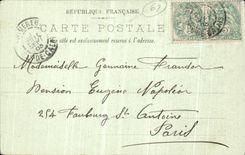 RÉPUBLIQUE FRANÇAISE
CARTE POSTALE
Ce côté est exclusivement réservé à l'adresse.
Mademoiselle Germaine Fraudon
Pension Eugène Napoléon
254 Faubourg St Antoine
Paris